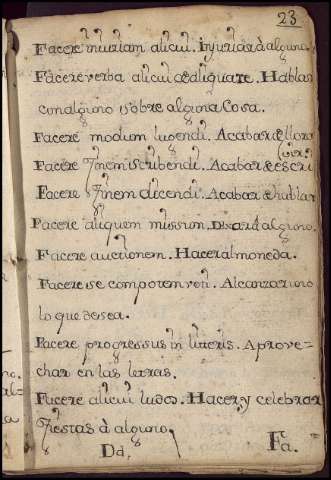 23
Facere iniuriam alicui. Injuriar à alguno.
Facere verba alicui de aliqua re. Hablar
con alguno sobre alguna Cosa.
Facere modum lugendi. Acabar de llorar
Facere finem scribendi. Acabar de escri
vir.
Facere finem dicendi. Acabar de hablar
Facere aliquem missum. Dexar à alguno.
Facere auctionem. Hacer almoneda.
Facere se compotem voti. Alcanzar uno
lo que desea.
Facere progressus in literis. Aprove=
char en las letras.
Facere alicui ludos. Hacer, y celebrar
fiestas à alguno,
Dd. Fa.